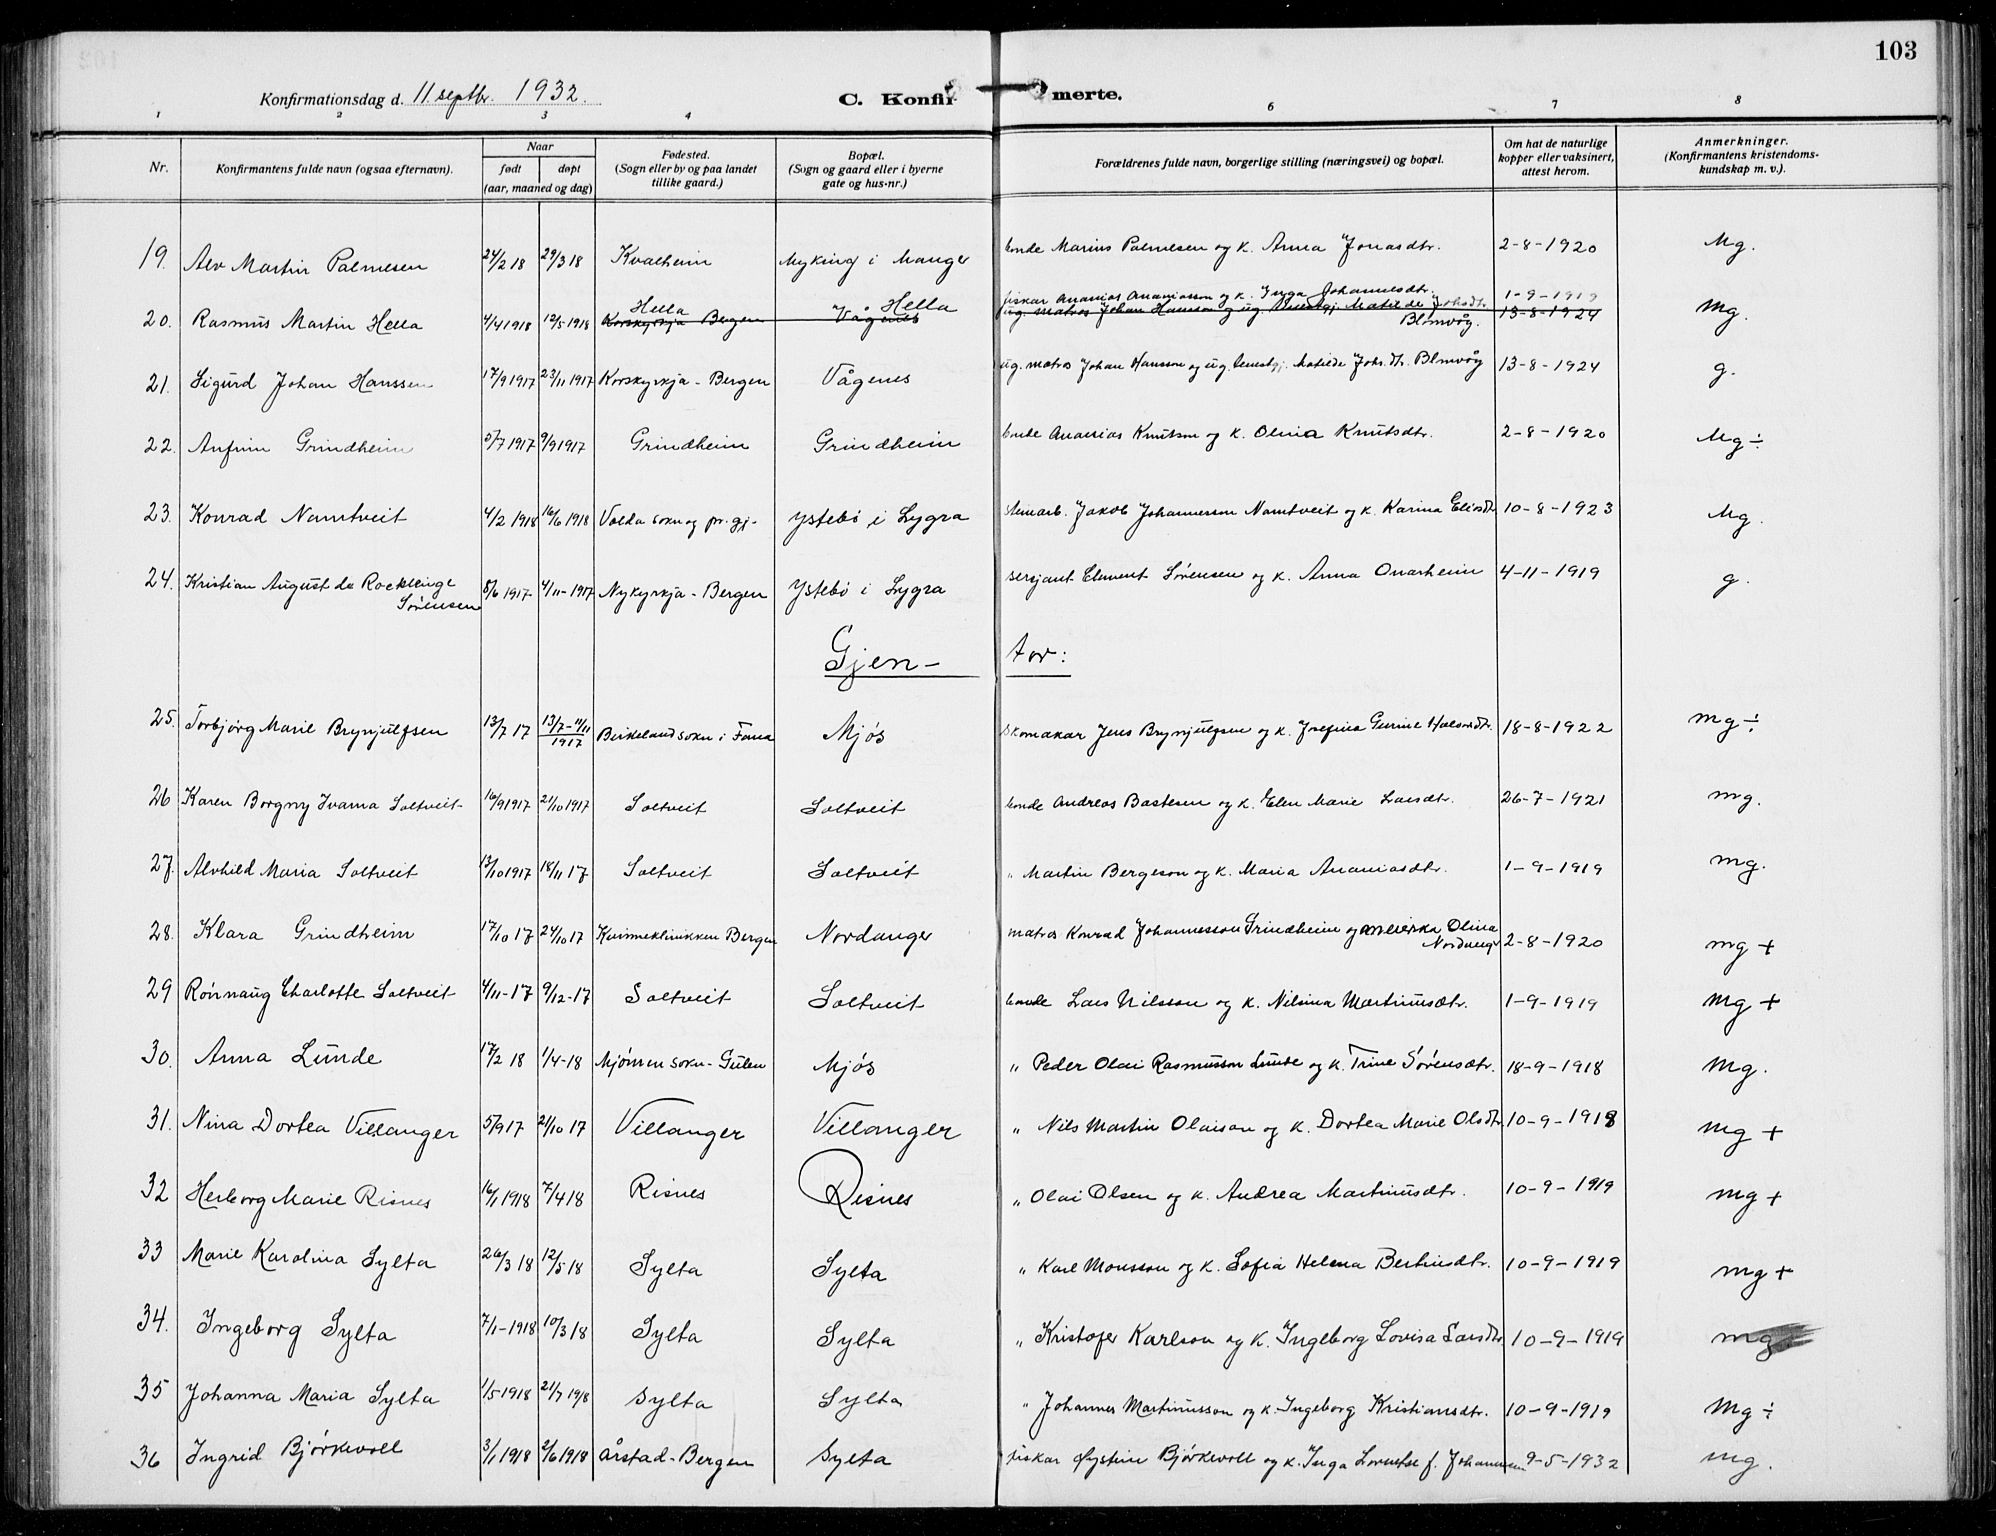 103
Konfirmationsdag d. 11 septbr. 1932.
C. Konfirmerte.
1 2 3 4 6 7 8
Nr.
Konfirmantens fulde navn (ogsaa efternavn).
Naar
født døpt
(aar, maaned og dag)
Fødested.
(Sogn eller by og paa landet
tillike gaard.)
Bopæl.
(Sogn og gaard eller i byerne
gate og hus-nr.)
Forældrenes fulde navn, borgerlige stilling (næringsvei) og bopæl.
Om hat de naturlige
kopper eller vaksinert,
attest herom.
Anmerkninger.
(Konfirmantens kristendoms-
kundskap m. v.).
19. Alv Martin Palmesen 24/2 18 29/3 18 Kvalheim Myking i Manger bonde Marius Palmesen og k. Anna Jonasdtr. 2-8-1920 Mg.
Hella Hella fiskar Ananias Ananiasson og k. Inga Johannesdtr. 1-9-1919
20. Rasmus Martin Hella 4/4 1918 12/5 1918 Korskyrkja Bergen Vågenes ug. matros Johan Hansson og ug. Matilde Johsdtr. Blomvåg. 13-8-1924 Mg.
21. Sigurd Johan Hanssen 17/9 1917 23/11 1917 Korskyrkja - Bergen Vågenes ug. matros Johan Hansson og ug. Matilde Johs.dtr. Blmvåg 13-8-1924 g.
22. Anfinn Grindheim 5/7 1917 9/9 1917 Grindheim Grindheim bonde Ananias Knutson og k. Olina Knutsdtr. 2-8-1920 Mg ÷
23. Konrad Namtveit 4/2 1918 16/6 1918 Volda sokn og pr.gj. Ystebö i Lygra Jakob Johannesson Namtveit og k. Karina Eliasdtr 10-8-1923 Mg.
24. Kristian August de Rocklenge
Sörensen 8/6 1917 4/11-1917 Nykyrkja - Bergen Ystebö i Lygra sersjant Clement Sörensen og k. Anna Onarheim 4-11-1919 g.
Gjen- tor:
25. Torbjörg Marie Brynjulfsen 13/7 17 13/7-11/11 1917 Birkeland sokn i Fana Mjös skomakar Jens Brynjulfsen og k. Josefine Gurine Halvorsdtr. 18-8-1922 mg ÷
26 Karen Borgny Ivarna Soltveit 16/9 1917 21/10 1917 Soltveit Soltveit bonde Andreas Bastesen og k. Elen Marie Larsdtr. 26-7-1921 mg.
27. Alvhild Maria Soltveit 13/10 1917 18/11 17 Soltveit Soltveit " Martin Bergeson og k. Maria Ananiasdtr. 1-9-1919 mg.
28. Klara Grindheim 17/10 17 24/10 17 Kvinneklinikken Bergen Nordanger matros Konrad Johannesson Grindheim og Olina
Nordanger 2-8-1920 mg +
29 Rönnaug Charlotte Soltveit 4/11-17 9/12-17 Soltveit Soltveit bonde Lars Nilsson og k. Nilsina Martinusdtr. 1-9-1919 mg +
30. Anna Lunde 17/2 18 1/4-18 Mjömen sokn - Gulen Mjös " Peder Olai Rasmusson Lunde og k. Trine Sörensdtr. 18-9-1918 Mg.
31. Nina Dortea Villanger 5/9 17 21/10 17 Villanger Villanger " Nils Martin Olaison og k. Dortea Marie Olsdtr 10-9-1918 mg +
32 Herborg Marie Risnes 16/1 1918 7/4 18 Risnes Risnes " Olai Olsen og k. Andrea Martinusdtr. 10-9-1919 mg +
33 Marie Karolina Sylta 26/3 18 12/5 18 Sylta Sylta " Karl Monsson og k. Sofia Helena Bertinsdtr. 10-9-1919 mg +
34. Ingeborg Sylta 7/1-1918 10/3 18 Sylta Sylta " Kristofer Karlson og k. Ingeborg Lovisa Larsdtr 10-9-1919 mg
35 Johanna Maria Sylta 1/5 1918 21/7 1918 Sylta Sylta " Johannes Martinusson og k. Ingeborg Kristiansdtr. 10-9-1919 Mg ÷
36 Ingrid Björkevoll 3/1 1918 2/6 1918 Årstad - Bergen Sylta fiskar Øystein Björkevoll og k. Inga Lovise f. Johannessen 9-5-1932 mg.